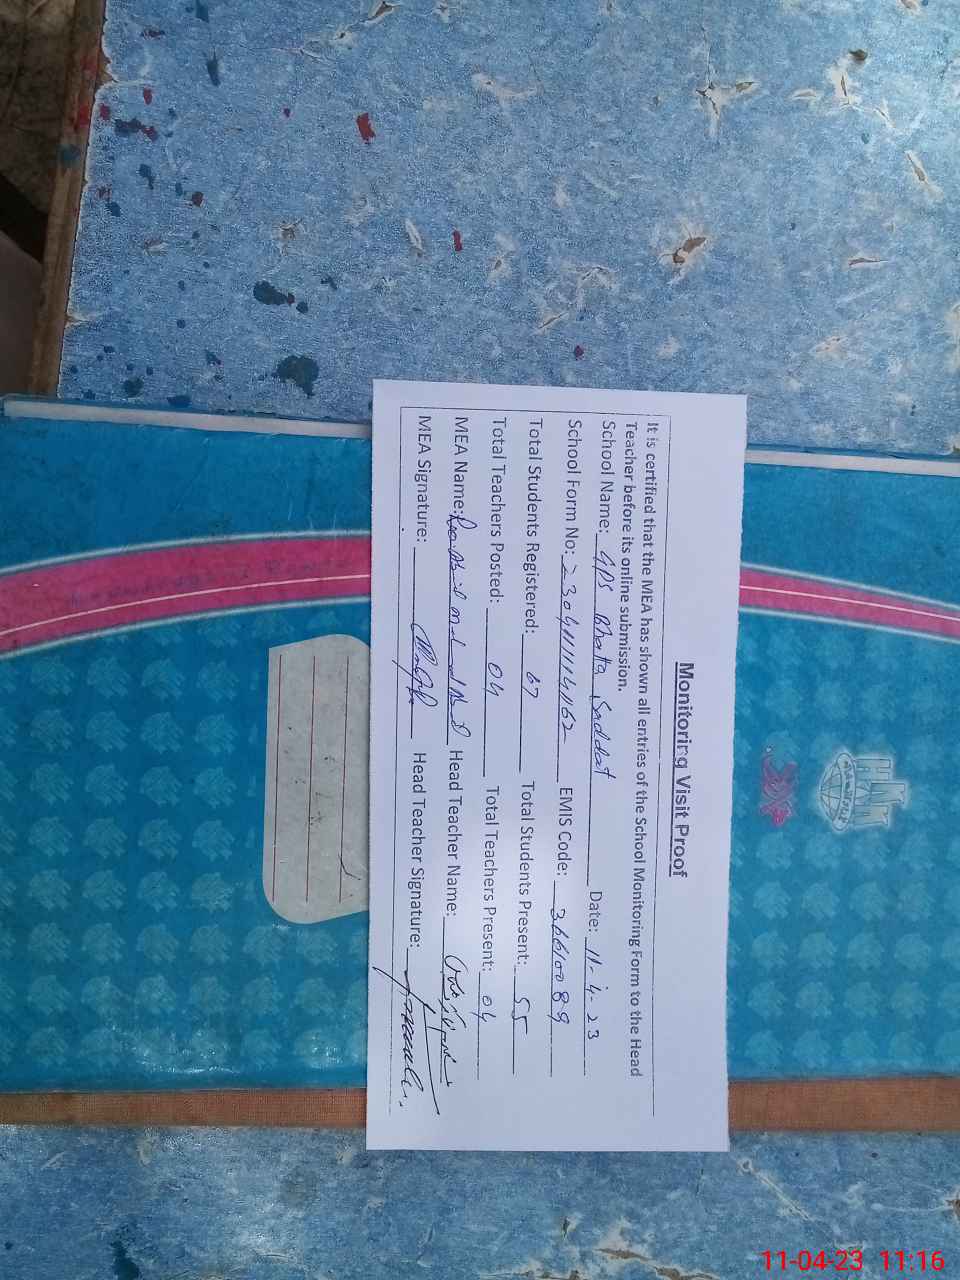 Monitoring Visit Proof
It is certified that the MEA has shown all entries of the School Monitoring Form to the Head
Teacher before its online submission.
School Name: GPS Bhatta Saddat Date: 11-4-23
School Form No: EMIS Code: 36610089
Total Students Registered: 67 Total Students Present: 55
Total Teachers Posted: 04 Total Teachers Present: 04
MEA Name: Head Teacher Name:
MEA Signature: Head Teacher Signature:
HN
11-04-23 11:16